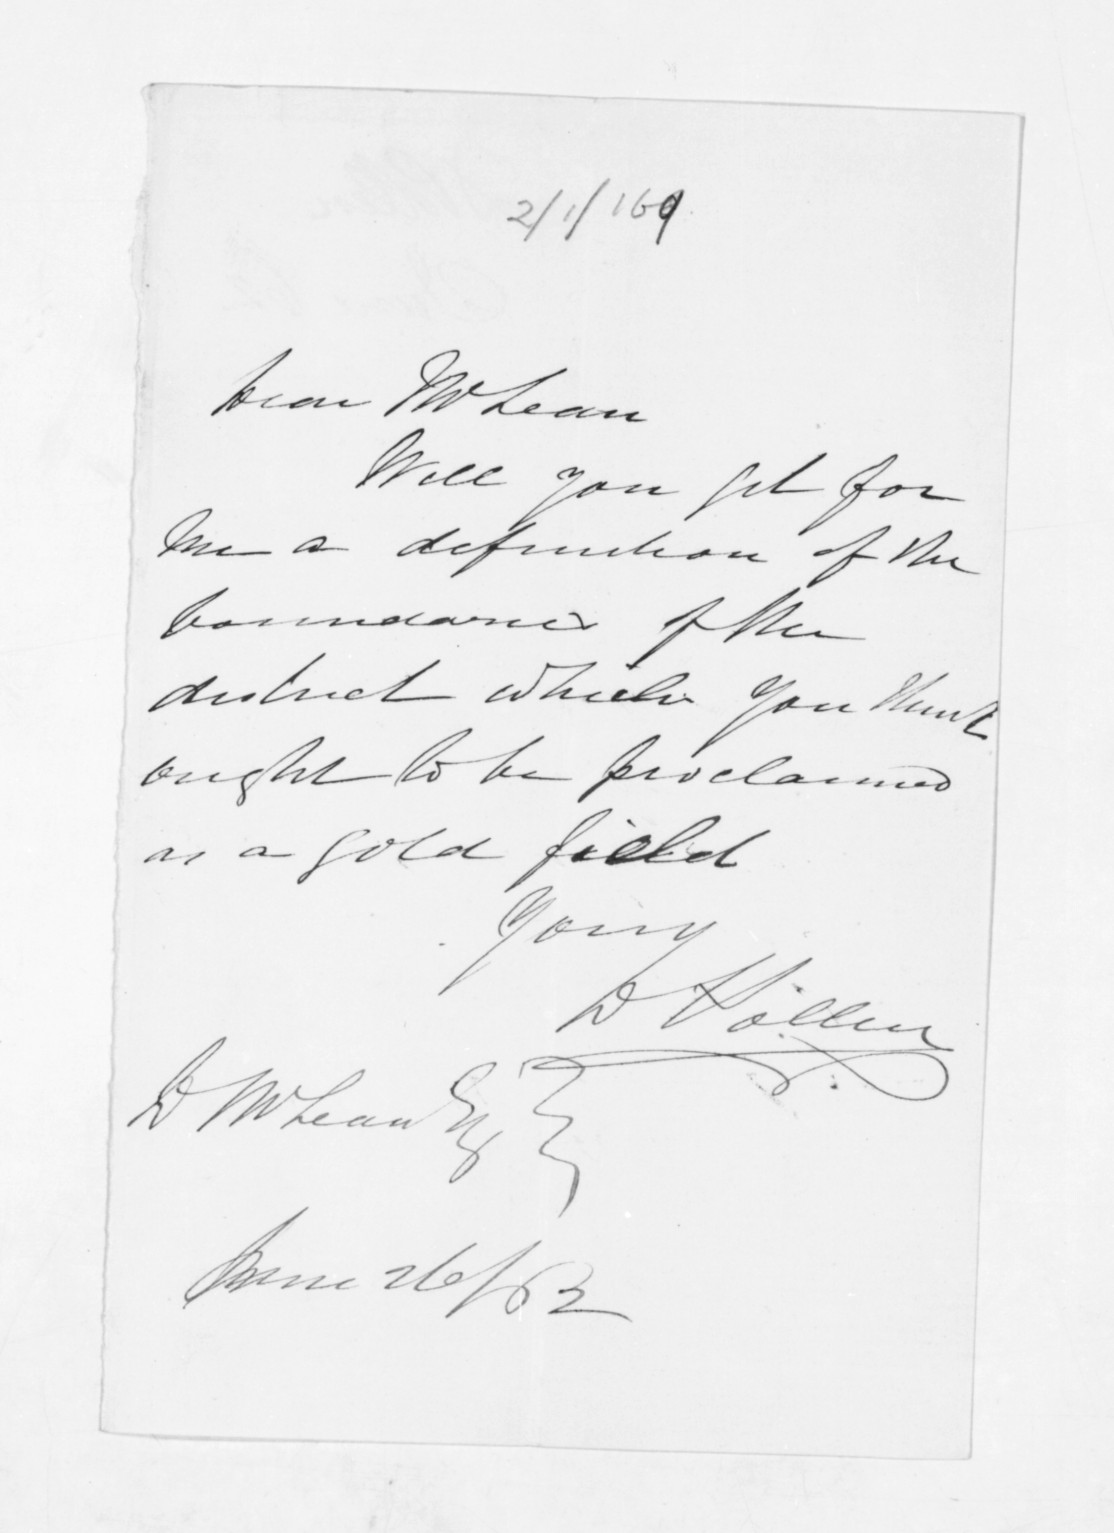 2/1/169
Dear McLean
Will you get for
me a definition of the
boundaries of the
district which you think
ought to be proclaimed
as a gold field
Yours
D Pollen
D McLean Esq
June 26/62